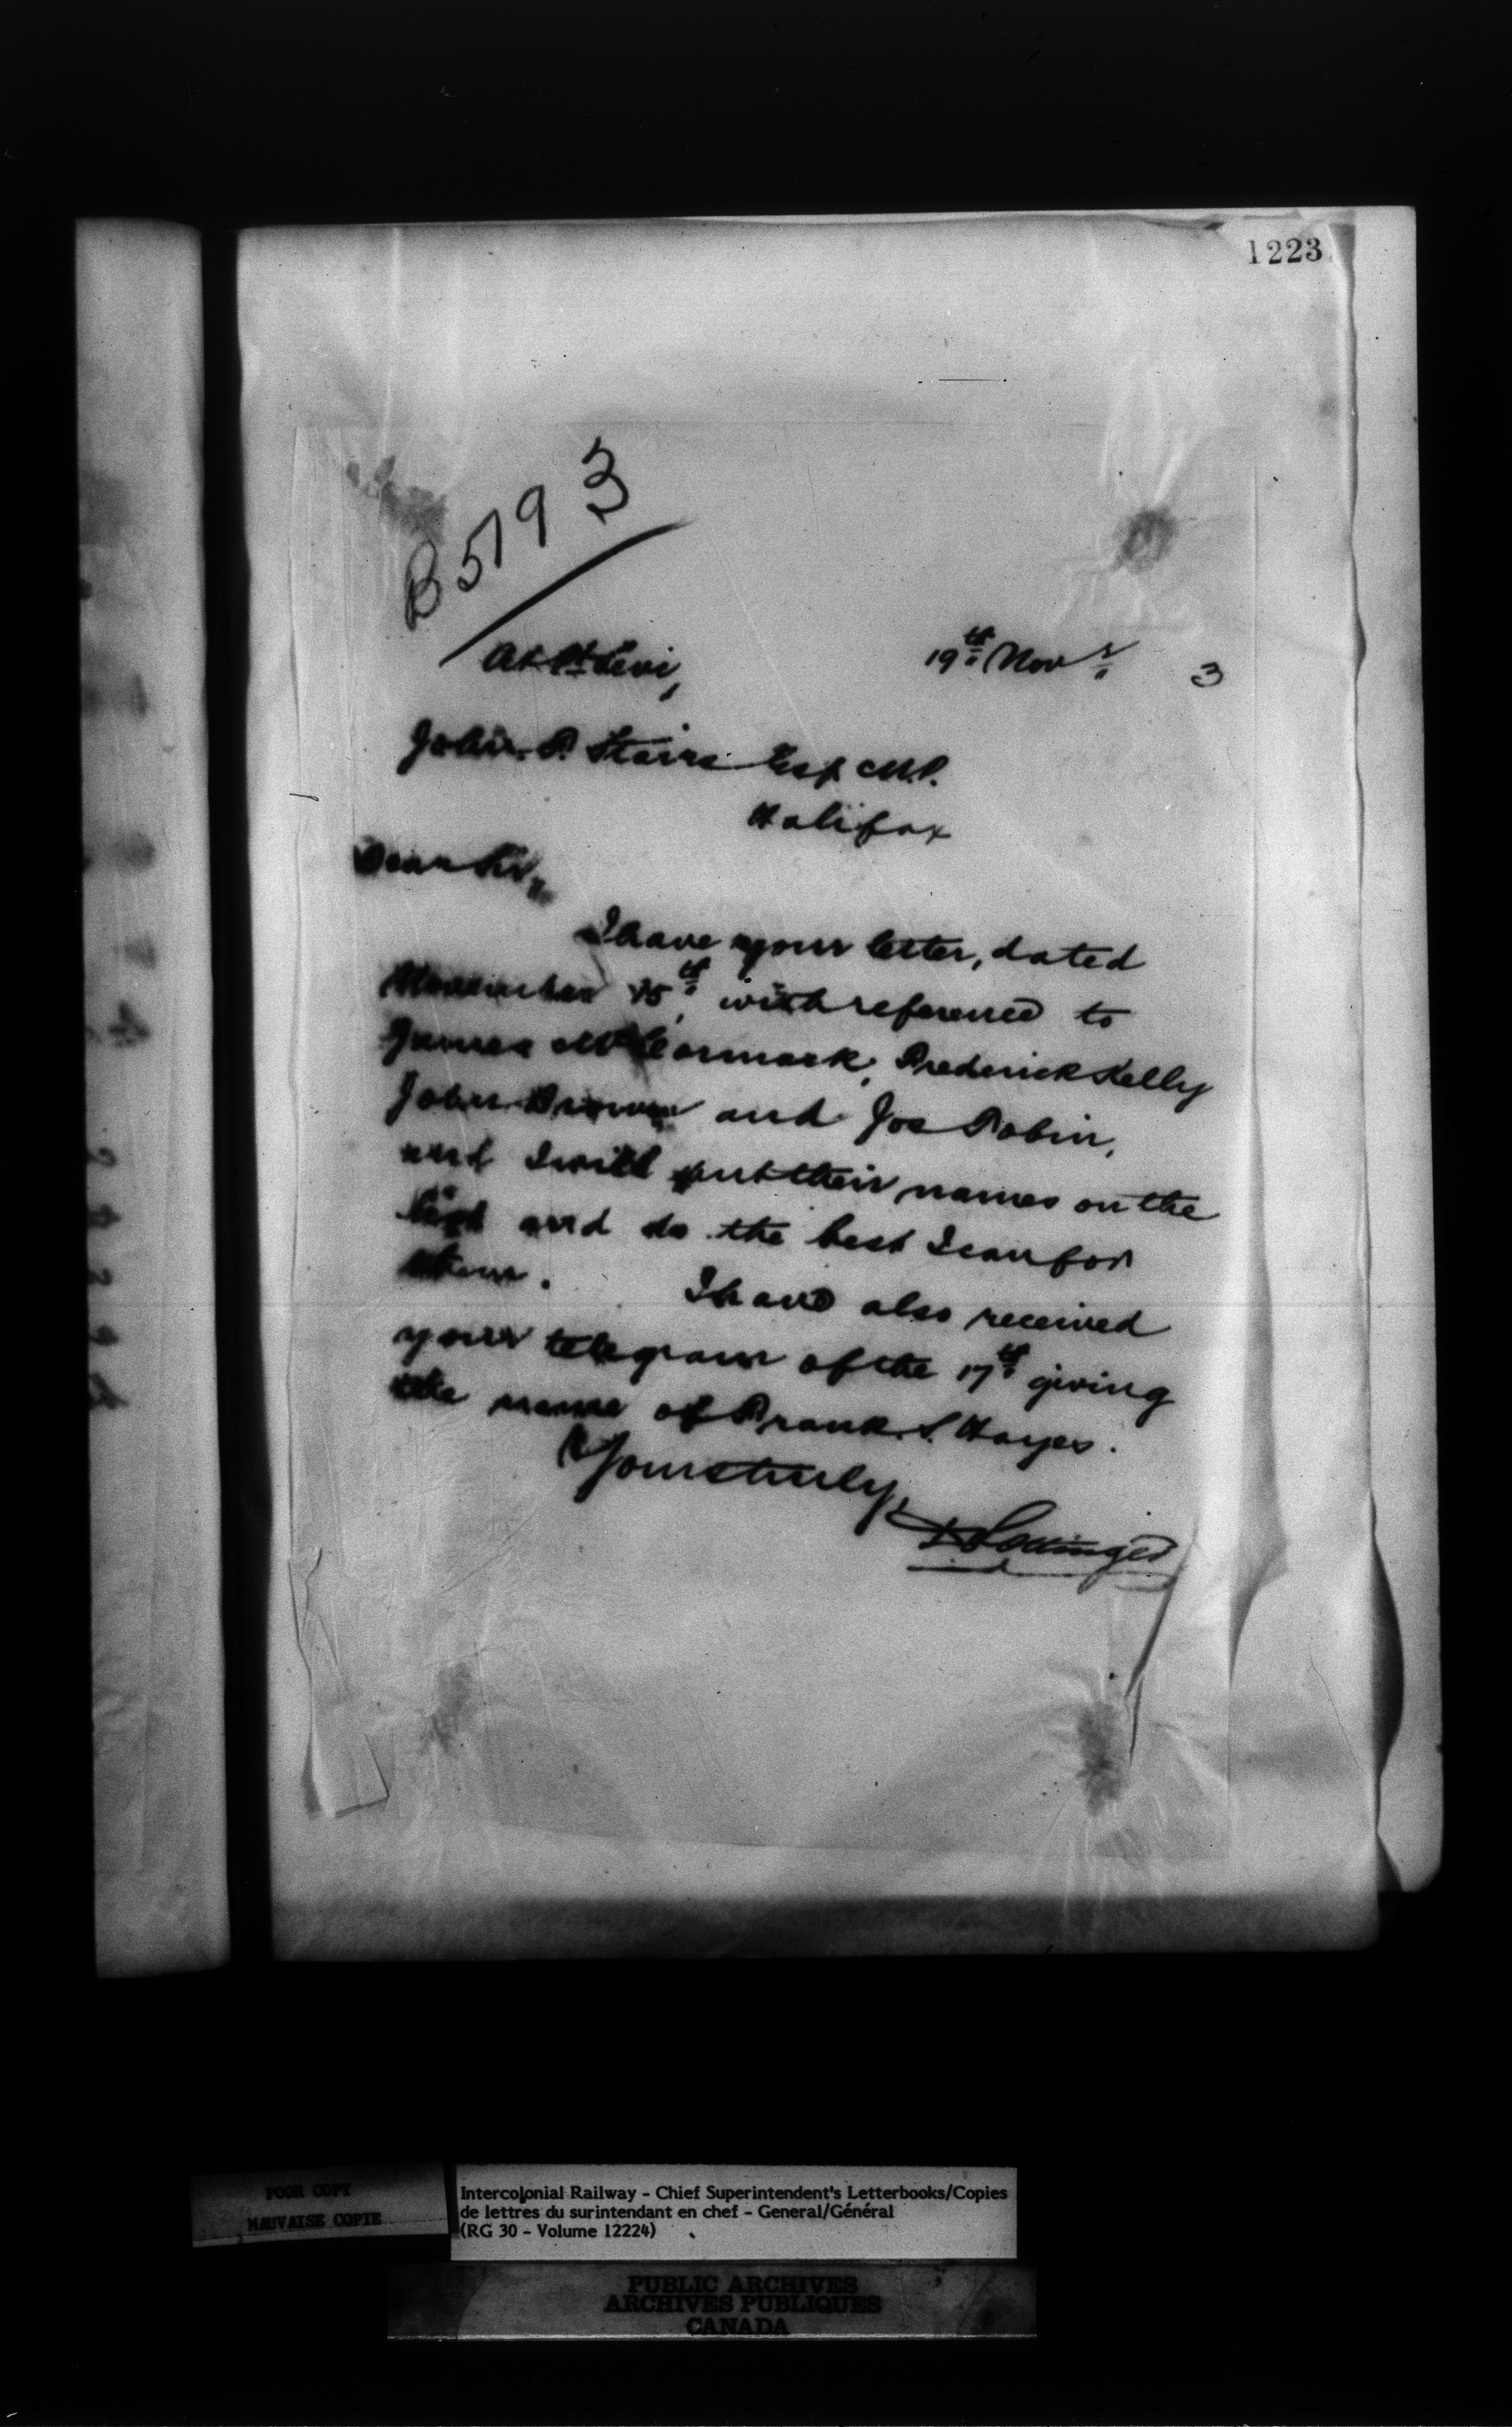 1223
B5793
At Pt Levi,
19th Novr 3
John. F. Stairs Esq M.P.
Halifax
Dear Sir,
I have your letter, dated
November 15th, with reference to
James McCormack, Frederick Kelly
John Brown and Jos Tobin,
and I will put their names on the
list and do the best I can for
them. I have also received
your telegram of the 17th giving
the name of Frank. S. Hayes.
Yours truly,
D Pottinger
POOR COPY
MAUVAISE COPIE
Intercolonial Railway - Chief Superintendent's Letterbooks/Copies
de lettres du surintendant en chef - General/Général
(RG 30 - Volume 12224)
PUBLIC ARCHIVES
ARCHIVES PUBLIQUES
CANADA